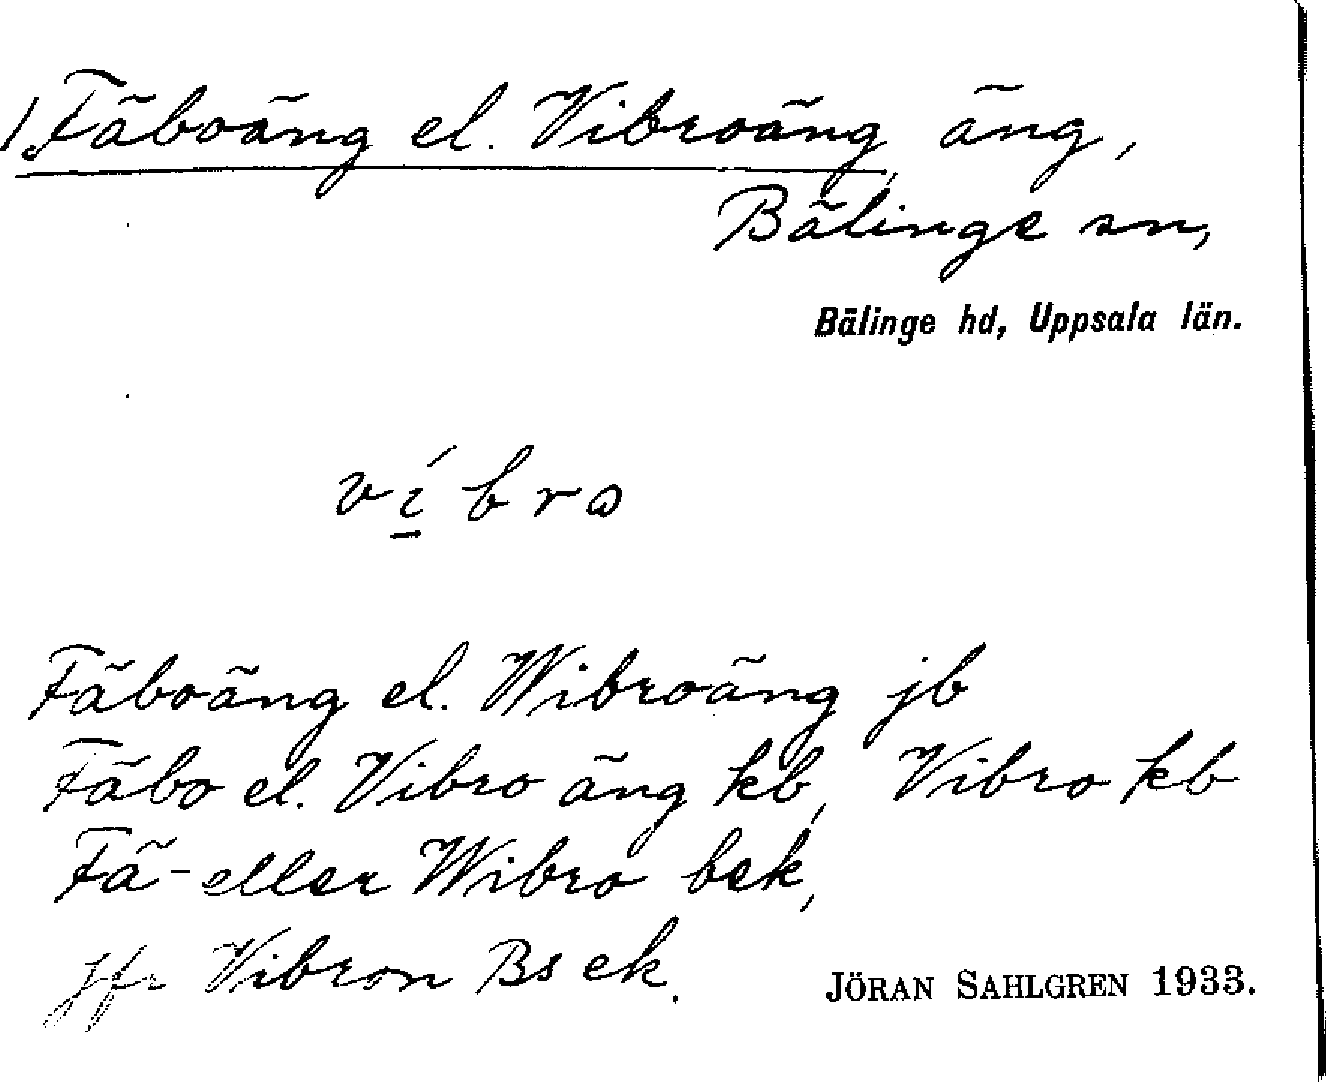 1. Fäboäng el. Vibroäng, äng,
Bälinge sn,
Bälinge hd, Uppsala län.
víbrω
Fäboäng el. Wibroäng jb
Fäbo el. Vibro äng kb, Vibro kb
Fä- eller Wibro bek,
jfr Vibron Bs ek.
JÖRAN SAHLGREN 1933.